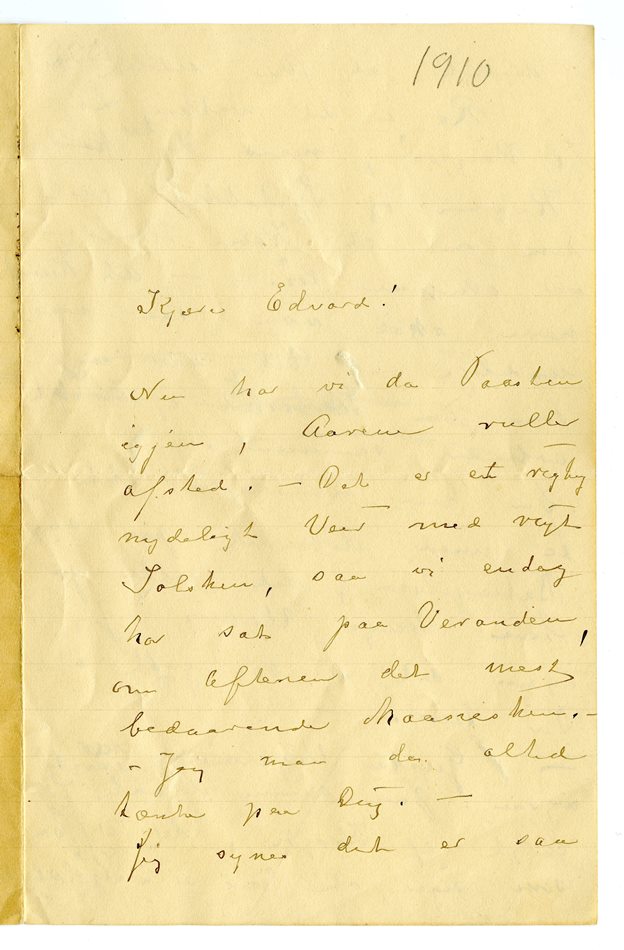 1910
Kjære Edvard!
Nu har vi da Paasken
igjen, Aarene ruller
afsted. – Det er et rigtig
nydeligt Veir med rigt
Solskin, saa vi endog
har sat paa Veranden,
om Aftenen det mest
bedaarende Maaneskin. –
– Jeg maa da altid
tænke paa Dig. –
Jeg synes det er saa